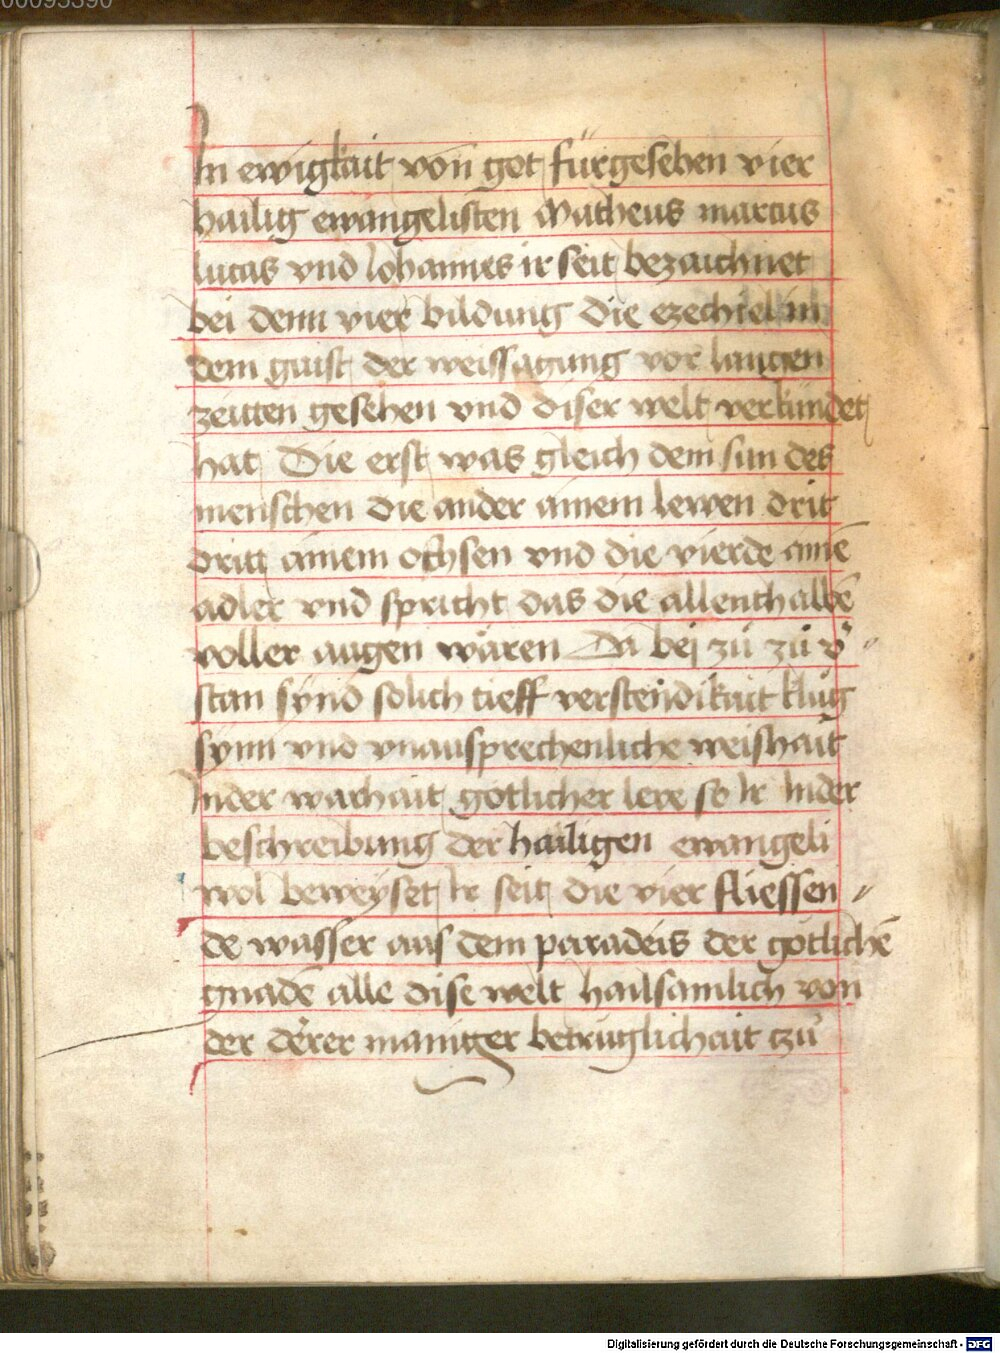 00095390
In ewigkait von got fürgesehen vier
hailig ewangelisten Matheus marcus
lucas vnd Johannes ir seit bezaichnet
bei denn vier bildung die ezechiel in
dem gaist der weissagung vor langen
zeitten gesehen vnd diser welt verkündet
hat Die erst was gleich dem sun des
menschen die ander ainem lewen drit
dritt ainem ochsen vnd die vierde aine̅
adler vnd spricht das die allenthalbe̅
voller augen wären Da bej zů zů v̓
stan synd solich tieff verstendikait klůg
synn vnd vnaussprechenliche weishait
Inder warhait gotlicher lere so Ir Inder
beschreibung der hailigen ewangeli
wol beweÿset Ir seit die vier fliessen
de wasser aus dem paradeis der götliche̅
gnade̅ alle dise welt hailsamlich von
der derer maniger betrüglichait czů
Digitalisierung gefördert durch die Deutsche Forschungsgemeinschaft - DFG